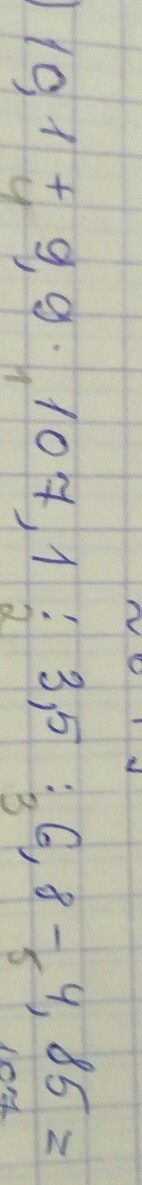 ) 10,1 + 9,9 · 107,1 : 3,5 : 6,8 - 4,85 =
4 1 2 3 5
107